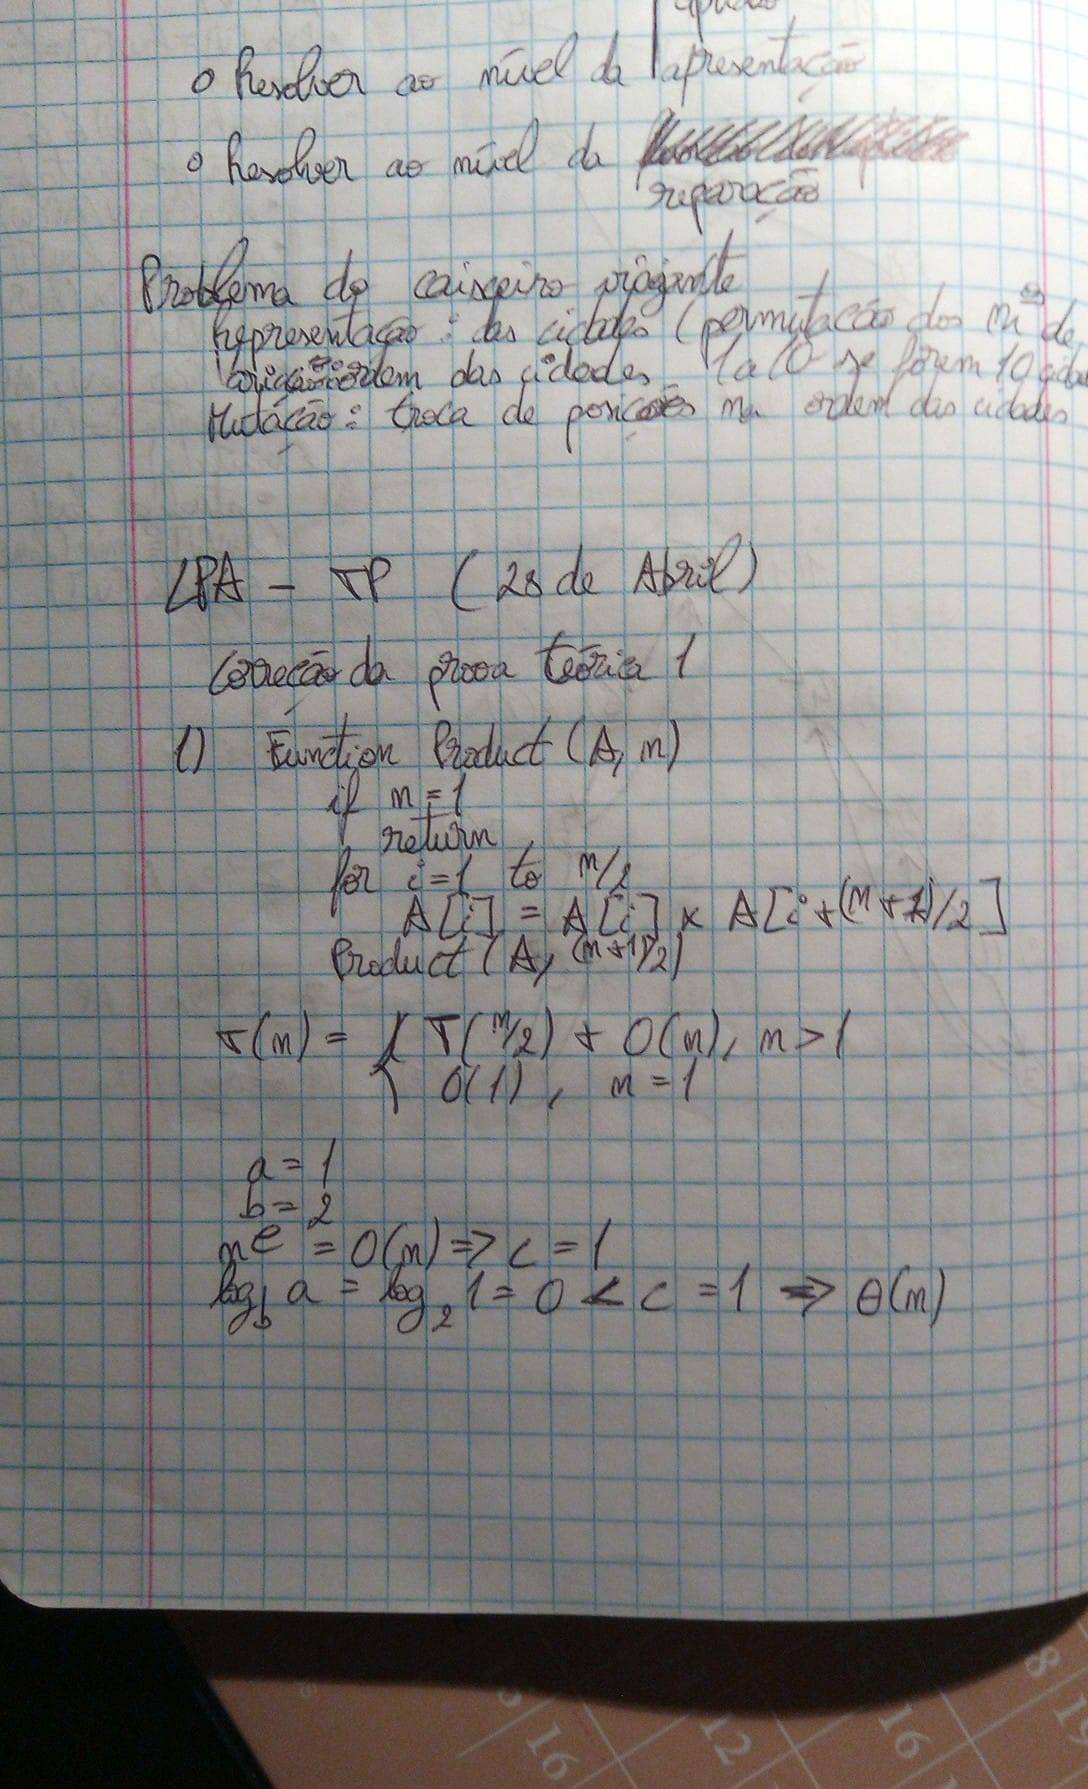 o Resolver ao nível da apresentação
o Resolver ao nível da
reparação
Problema do caixeiro viajante
Representação: das cidades (permutação dos nos de
ordem das cidades 1 a 10 se forem 10 cida
Mutação: troca de posições na ordem das cidades
LPA - TP (28 de Abril)
Correção da prova teórica 1
1) Function Product (A, n)
if n = 1
return
for i = 1 to n/2
A[i] = A[i] x A[i + (n + 1)/2]
Product (A, (n+1)/2)
T(n) = { T(n/2) + O(n), n > 1
O(1), n = 1
a = 1
b = 2
n^c = O(n) => c = 1
log_b a = log_2 1 = 0 < c = 1 => θ(n)
16
12
16
18
19